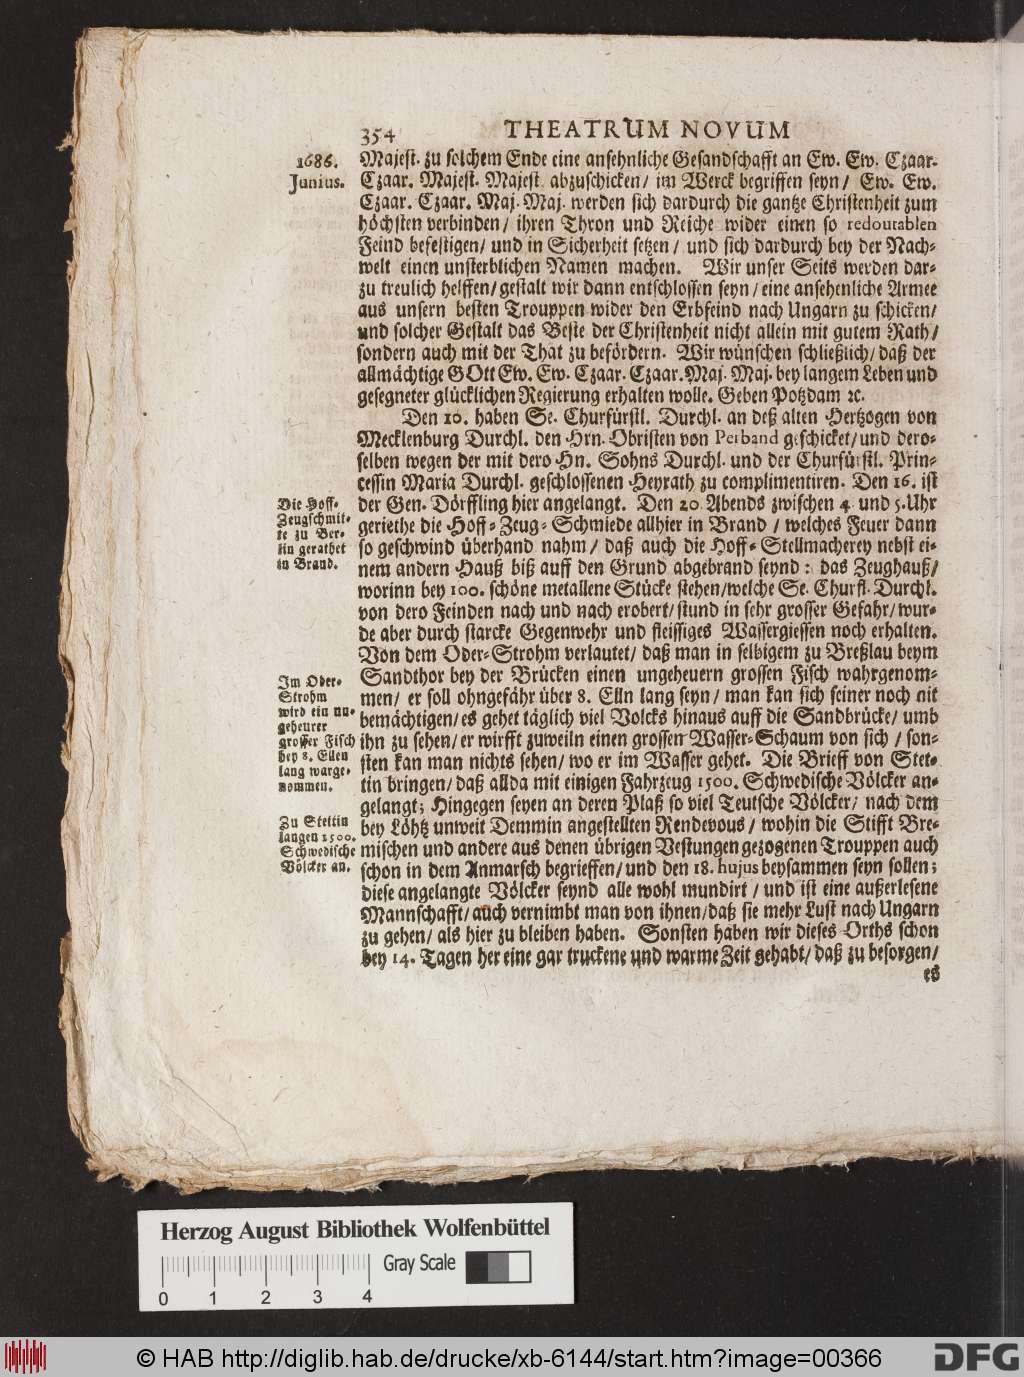 354 THEATRUM NOVUM
1686.
Junius.
Majest. zu solchem Ende eine ansehnliche Gesandschafft an Ew. Ew. Czaar.
Czaar. Majest. Majest. abzuschicken/ im Werck begriffen seyn/ Ew. Ew.
Czaar. Czaar. Maj. Maj. werden sich dardurch die gantze Christenheit zum
höchsten verbinden/ ihren Thron und Reiche wider einen so redoutablen
Feind befestigen/ und in Sicherheit setzen/ und sich dardurch bey der Nach-
welt einen unsterblichen Namen machen. Wir unser Seits werden dar-
zu treulich helffen/ gestalt wir dann entschlossen seyn/ eine ansehenliche Armee
aus unsern besten Trouppen wider den Erbfeind nach Ungarn zu schicken/
und solcher Gestalt das Beste der Christenheit nicht allein mit gutem Rath/
sondern auch mit der That zu befördern. Wir wünschen schließlich/ daß der
allmächtige GOtt Ew. Ew. Czaar. Czaar. Maj. Maj. bey langem Leben und
gesegneter glücklichen Regierung erhalten wolle. Geben Potzdam ꝛc.
Den 10. haben Se. Churfürstl. Durchl. an deß alten Hertzogen von
Mecklenburg Durchl. den Hrn. Obristen von Perband geschicket/ und dero-
selben wegen der mit dero Hn. Sohns Durchl. und der Churfürstl. Prin-
cessin Maria Durchl. geschlossenen Heyrath zu complimentiren. Den 16. ist
der Gen. Dörffling hier angelangt. Den 20. Abends zwischen 4. und 5. Uhr
geriethe die Hoff-Zeug-Schmiede allhier in Brand/ welches Feuer dann
so geschwind überhand nahm/ daß auch die Hoff-Stellmacherey nebst ei-
nem andern Hauß biß auff den Grund abgebrand seynd: das Zeughauß/
worinn bey 100. schöne metallene Stücke stehen/ welche Se. Churfl. Durchl.
von dero Feinden nach und nach erobert/ stund in sehr grosser Gefahr/ wur-
de aber durch starcke Gegenwehr und fleissiges Wassergiessen noch erhalten.
Von dem Oder-Strohm verlautet/ daß man in selbigem zu Breßlau beym
Sandthor bey der Brücken einen ungeheuern grossen Fisch wahrgenom-
men/ er soll ohngefähr über 8. Elln lang seyn/ man kan sich seiner noch nit
bemächtigen/ es gehet täglich viel Volcks hinaus auff die Sandbrücke/ umb
ihn zu sehen/ er wirfft zuweiln einen grossen Wasser-Schaum von sich/ son-
sten kan man nichts sehen/ wo er im Wasser gehet. Die Brieff von Stet-
tin bringen/ daß allda mit einigen Fahrzeug 1500. Schwedische Völcker an-
gelangt; Hingegen seyen an deren Plaß so viel Teutsche Völcker/ nach dem
bey Löhtz unweit Demmin angestellten Rendevous/ wohin die Stifft Bre-
mischen und andere aus denen übrigen Vestungen gezogenen Trouppen auch
schon in dem Anmarsch begrieffen/ und den 18. hujus beysammen seyn sollen;
diese angelangte Völcker seynd alle wohl mundirt/ und ist eine außerlesene
Mannschafft/ auch vernimbt man von ihnen/ daß sie mehr Lust nach Ungarn
zu gehen/ als hier zu bleiben haben. Sonsten haben wir dieses Orths schon
bey 14. Tagen her eine gar truckene und warme Zeit gehabt/ daß zu besorgen/
es
Die Hoff-
Zeugschmit-
te zu Ber-
lin gerathet
in Brand.
Im Oder-
Strohm
wird ein un-
geheurer
grosser Fisch
bey 8. Ellen
lang warge-
nommen.
Zu Stettin
langen 1500.
Schwedische
Völcker an.
Herzog August Bibliothek Wolfenbüttel
Gray Scale
0 1 2 3 4
© HAB http://diglib.hab.de/drucke/xb-6144/start.htm?image=00366
DFG